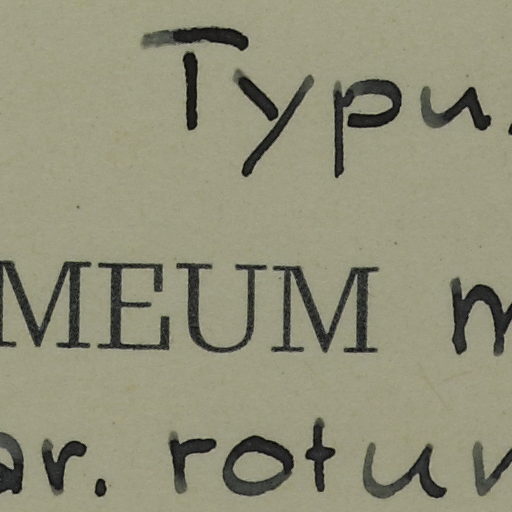 Typu
MEUM m
ar. rotun